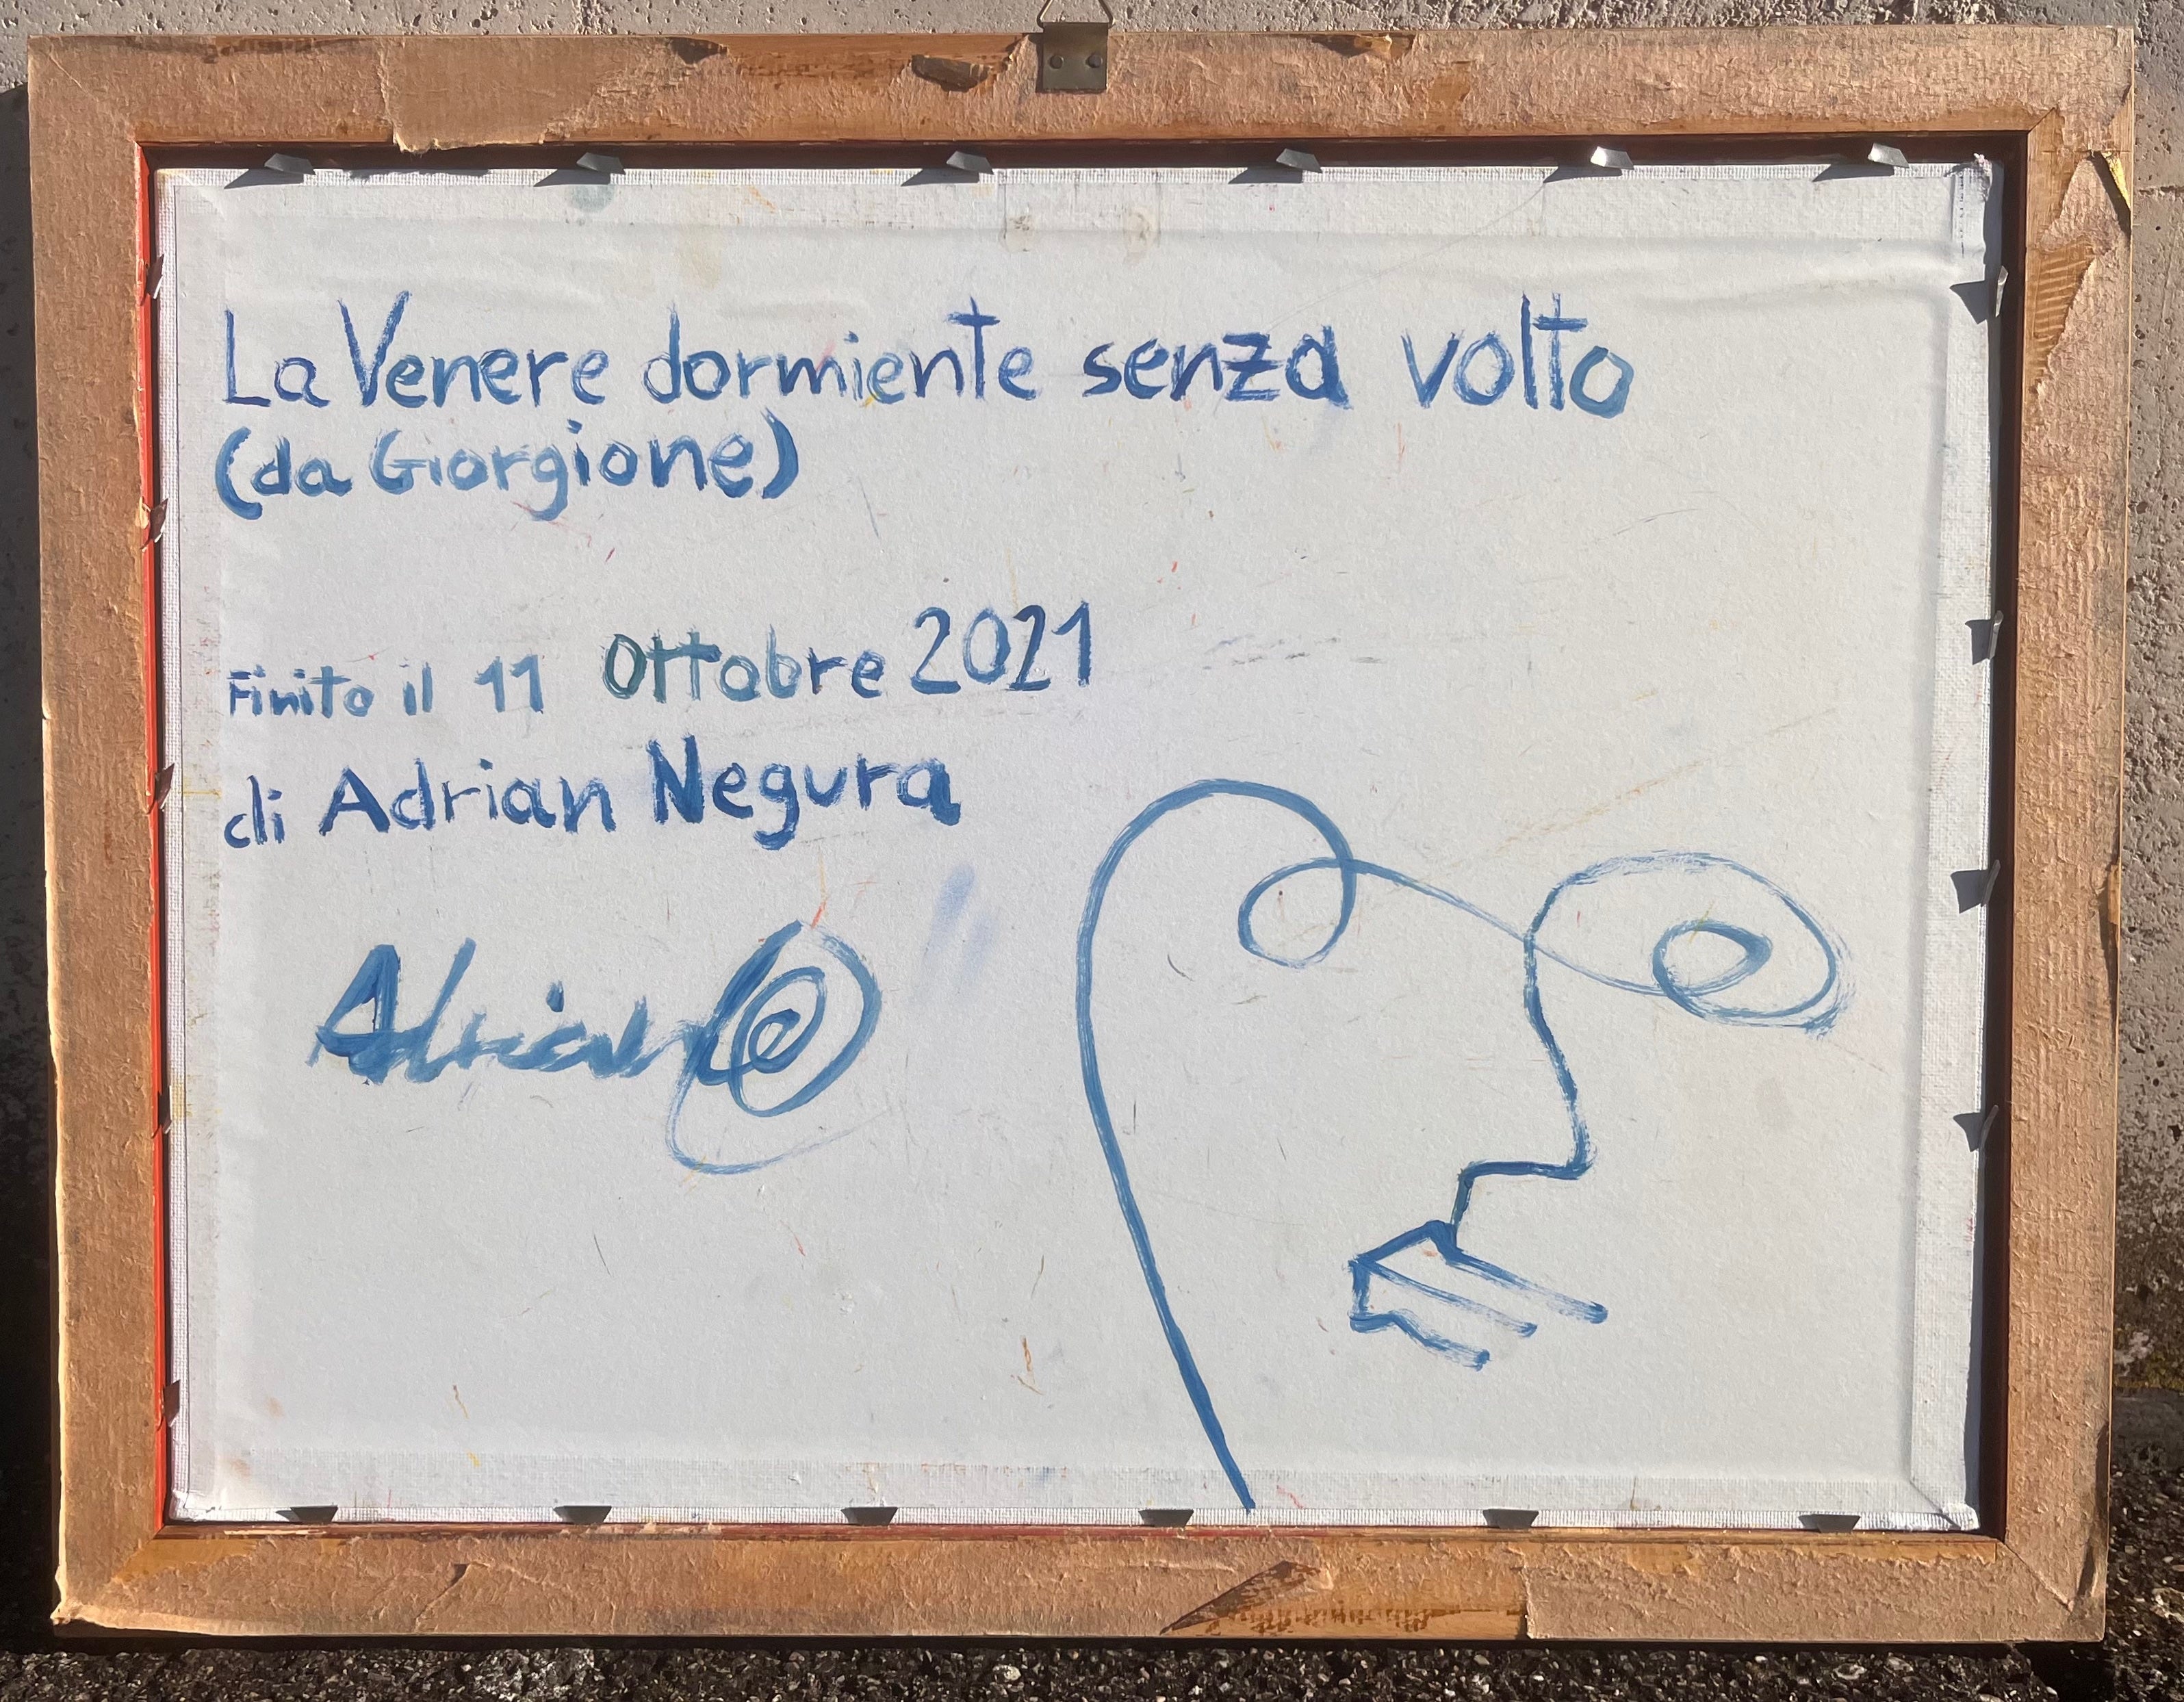 La Venere dormiente senza volto
(da Giorgione)
Finito il 11 Ottobre 2021
di Adrian Negura
Adrian